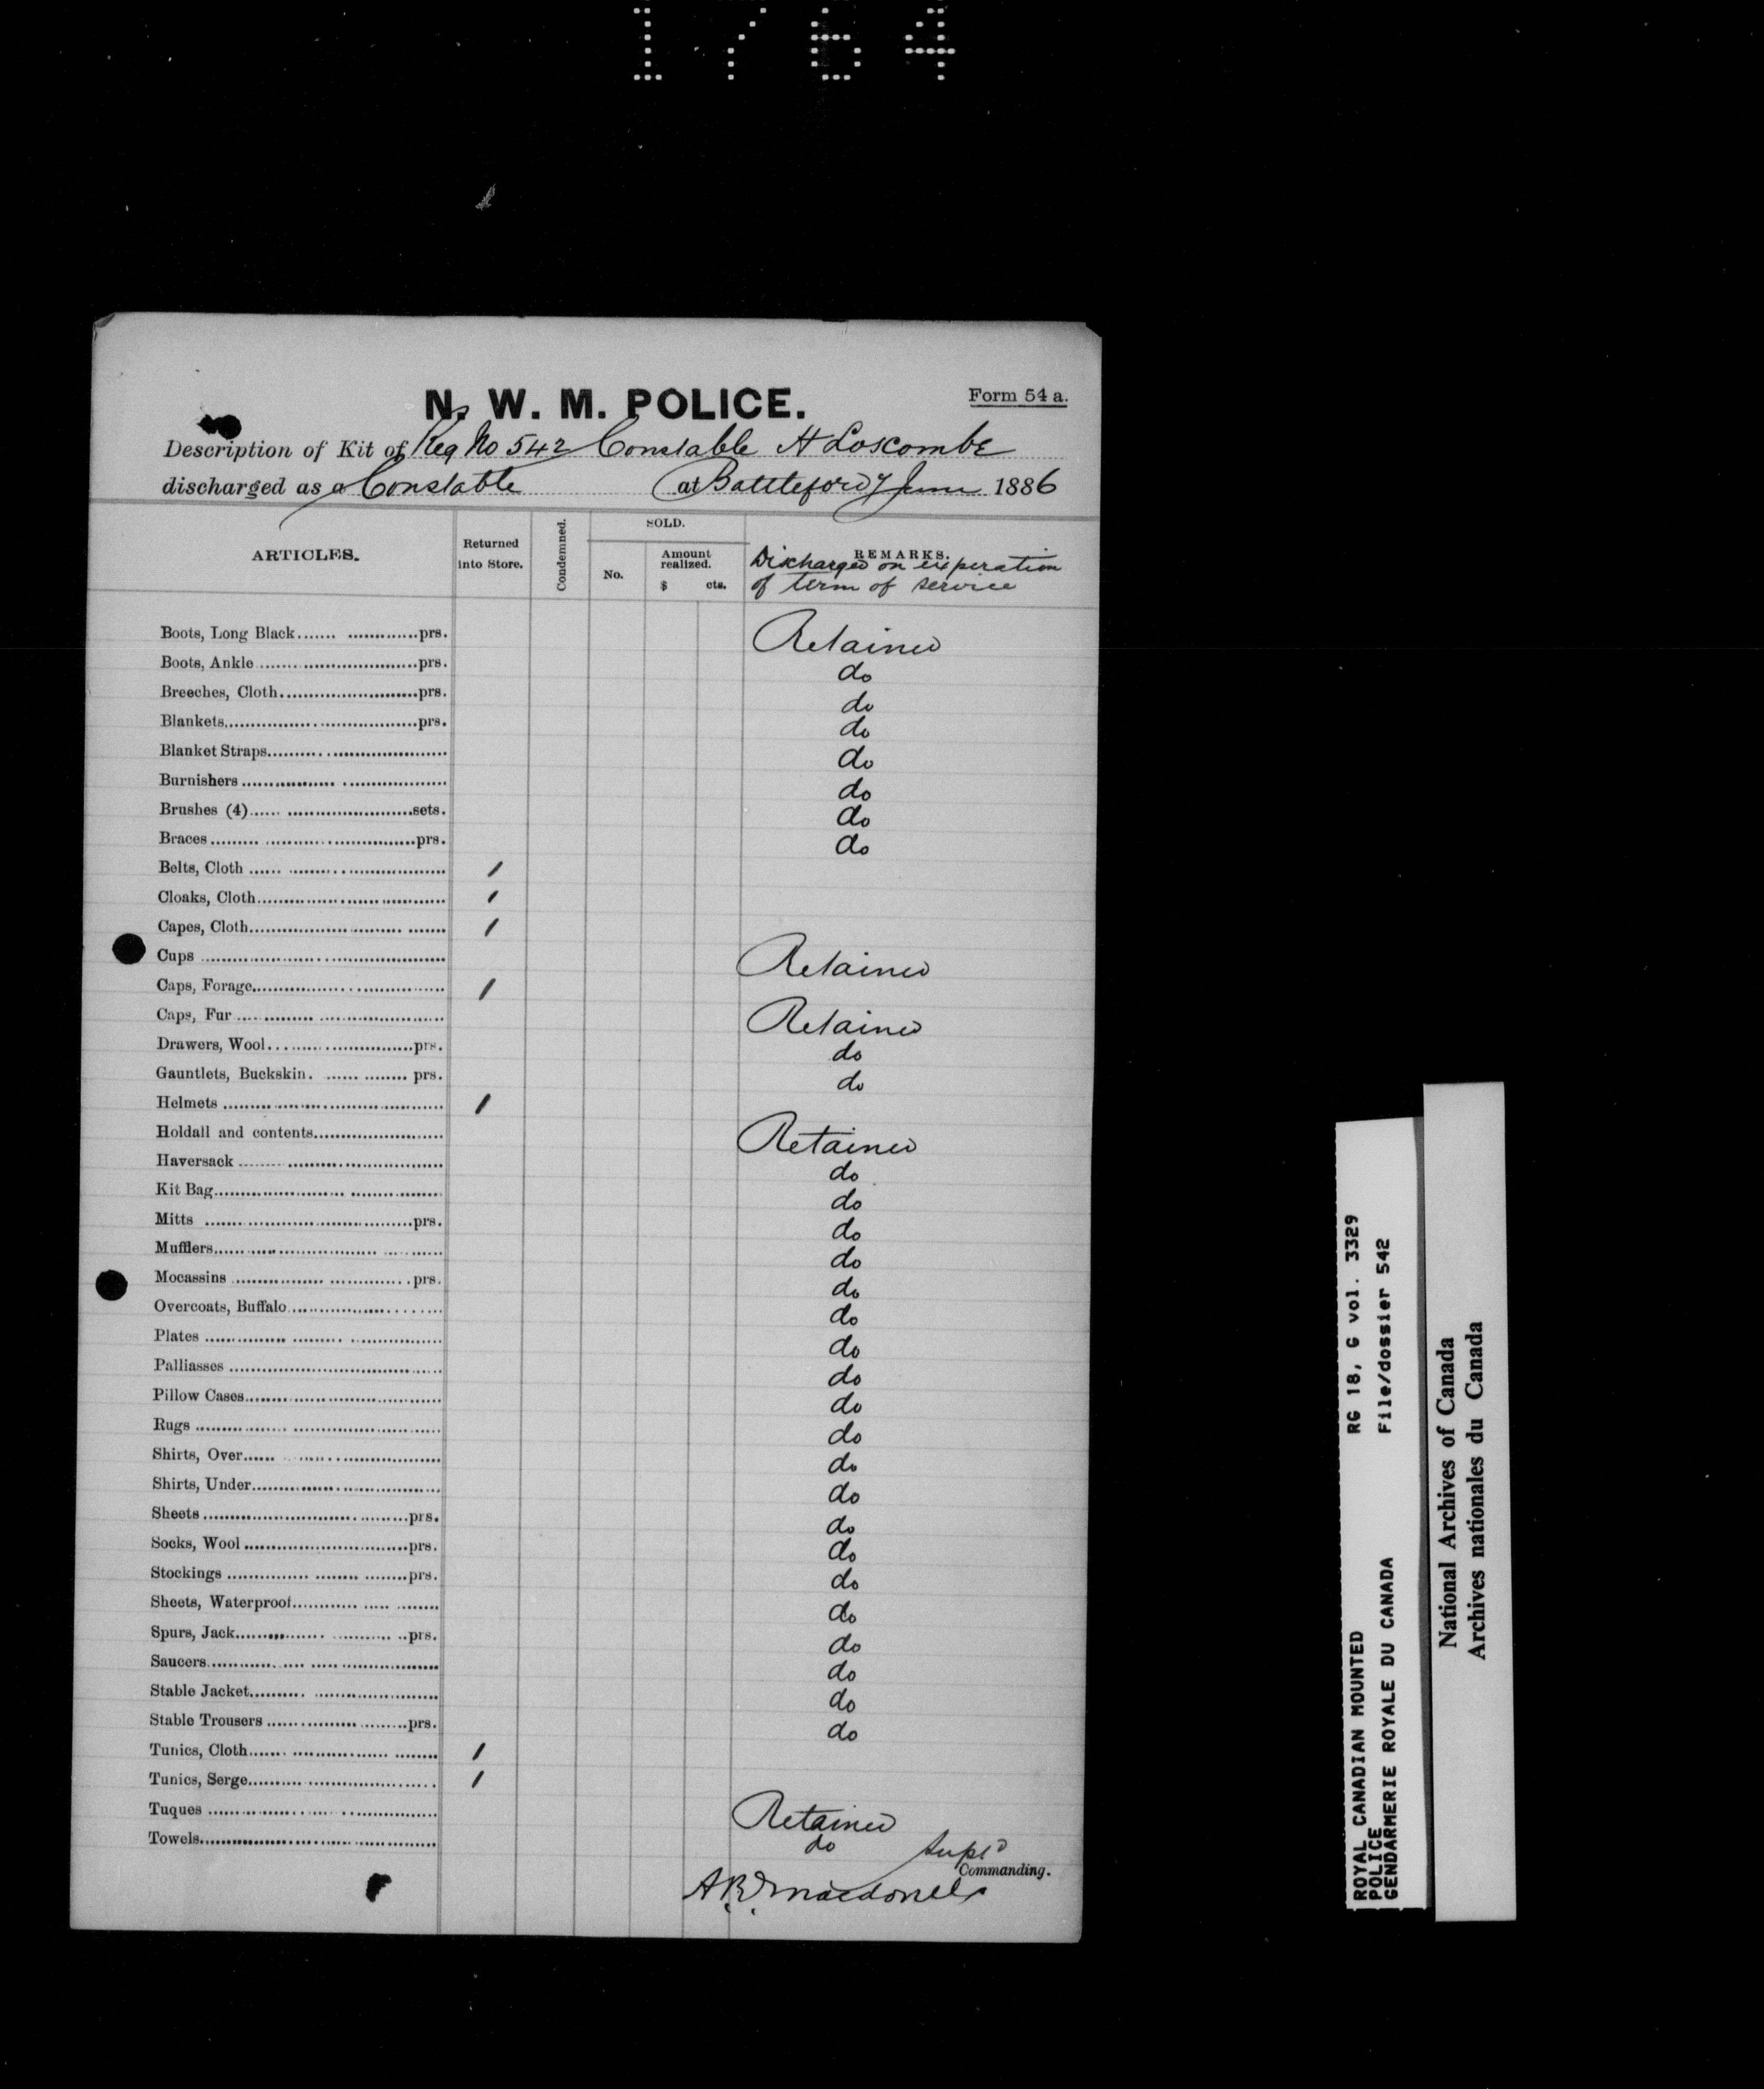 1764
N. W. M. POLICE.
Form 54 a.
Description of Kit of Reg No 542 Constable H Loscombe
discharged as a Constable at Battleford 7 June 1886
ARTICLES. Returned into Store. Condemned. SOLD. No. Amount realized. $ cts. REMARKS.
Discharged on experation
of term of service
Boots, Long Black prs. Retained
Boots, Ankle prs. do
Breeches, Cloth prs. do
Blankets prs. do
Blanket Straps do
Burnishers do
Brushes (4) sets. do
Braces prs. do
Belts, Cloth 1
Cloaks, Cloth 1
Capes, Cloth 1
Cups Retained
Caps, Forage 1
Caps, Fur Retained
Drawers, Wool prs. do
Gauntlets, Buckskin prs. do
Helmets 1
Holdall and contents Retained
Haversack do
Kit Bag do
Mitts prs. do
Mufflers do
Mocassins prs. do
Overcoats, Buffalo do
Plates do
Palliasses do
Pillow Cases do
Rugs do
Shirts, Over do
Shirts, Under do
Sheets prs. do
Socks, Wool prs. do
Stockings prs. do
Sheets, Waterproof do
Spurs, Jack prs. do
Saucers do
Stable Jacket do
Stable Trousers prs. do
Tunics, Cloth 1
Tunics, Serge 1
Tuques Retained
Towels do
Supt
Commanding.
A R Macdonell
ROYAL CANADIAN MOUNTED RG 18, G vol. 3329
POLICE File/dossier 542
GENDARMERIE ROYALE DU CANADA
National Archives of Canada
Archives nationales du Canada